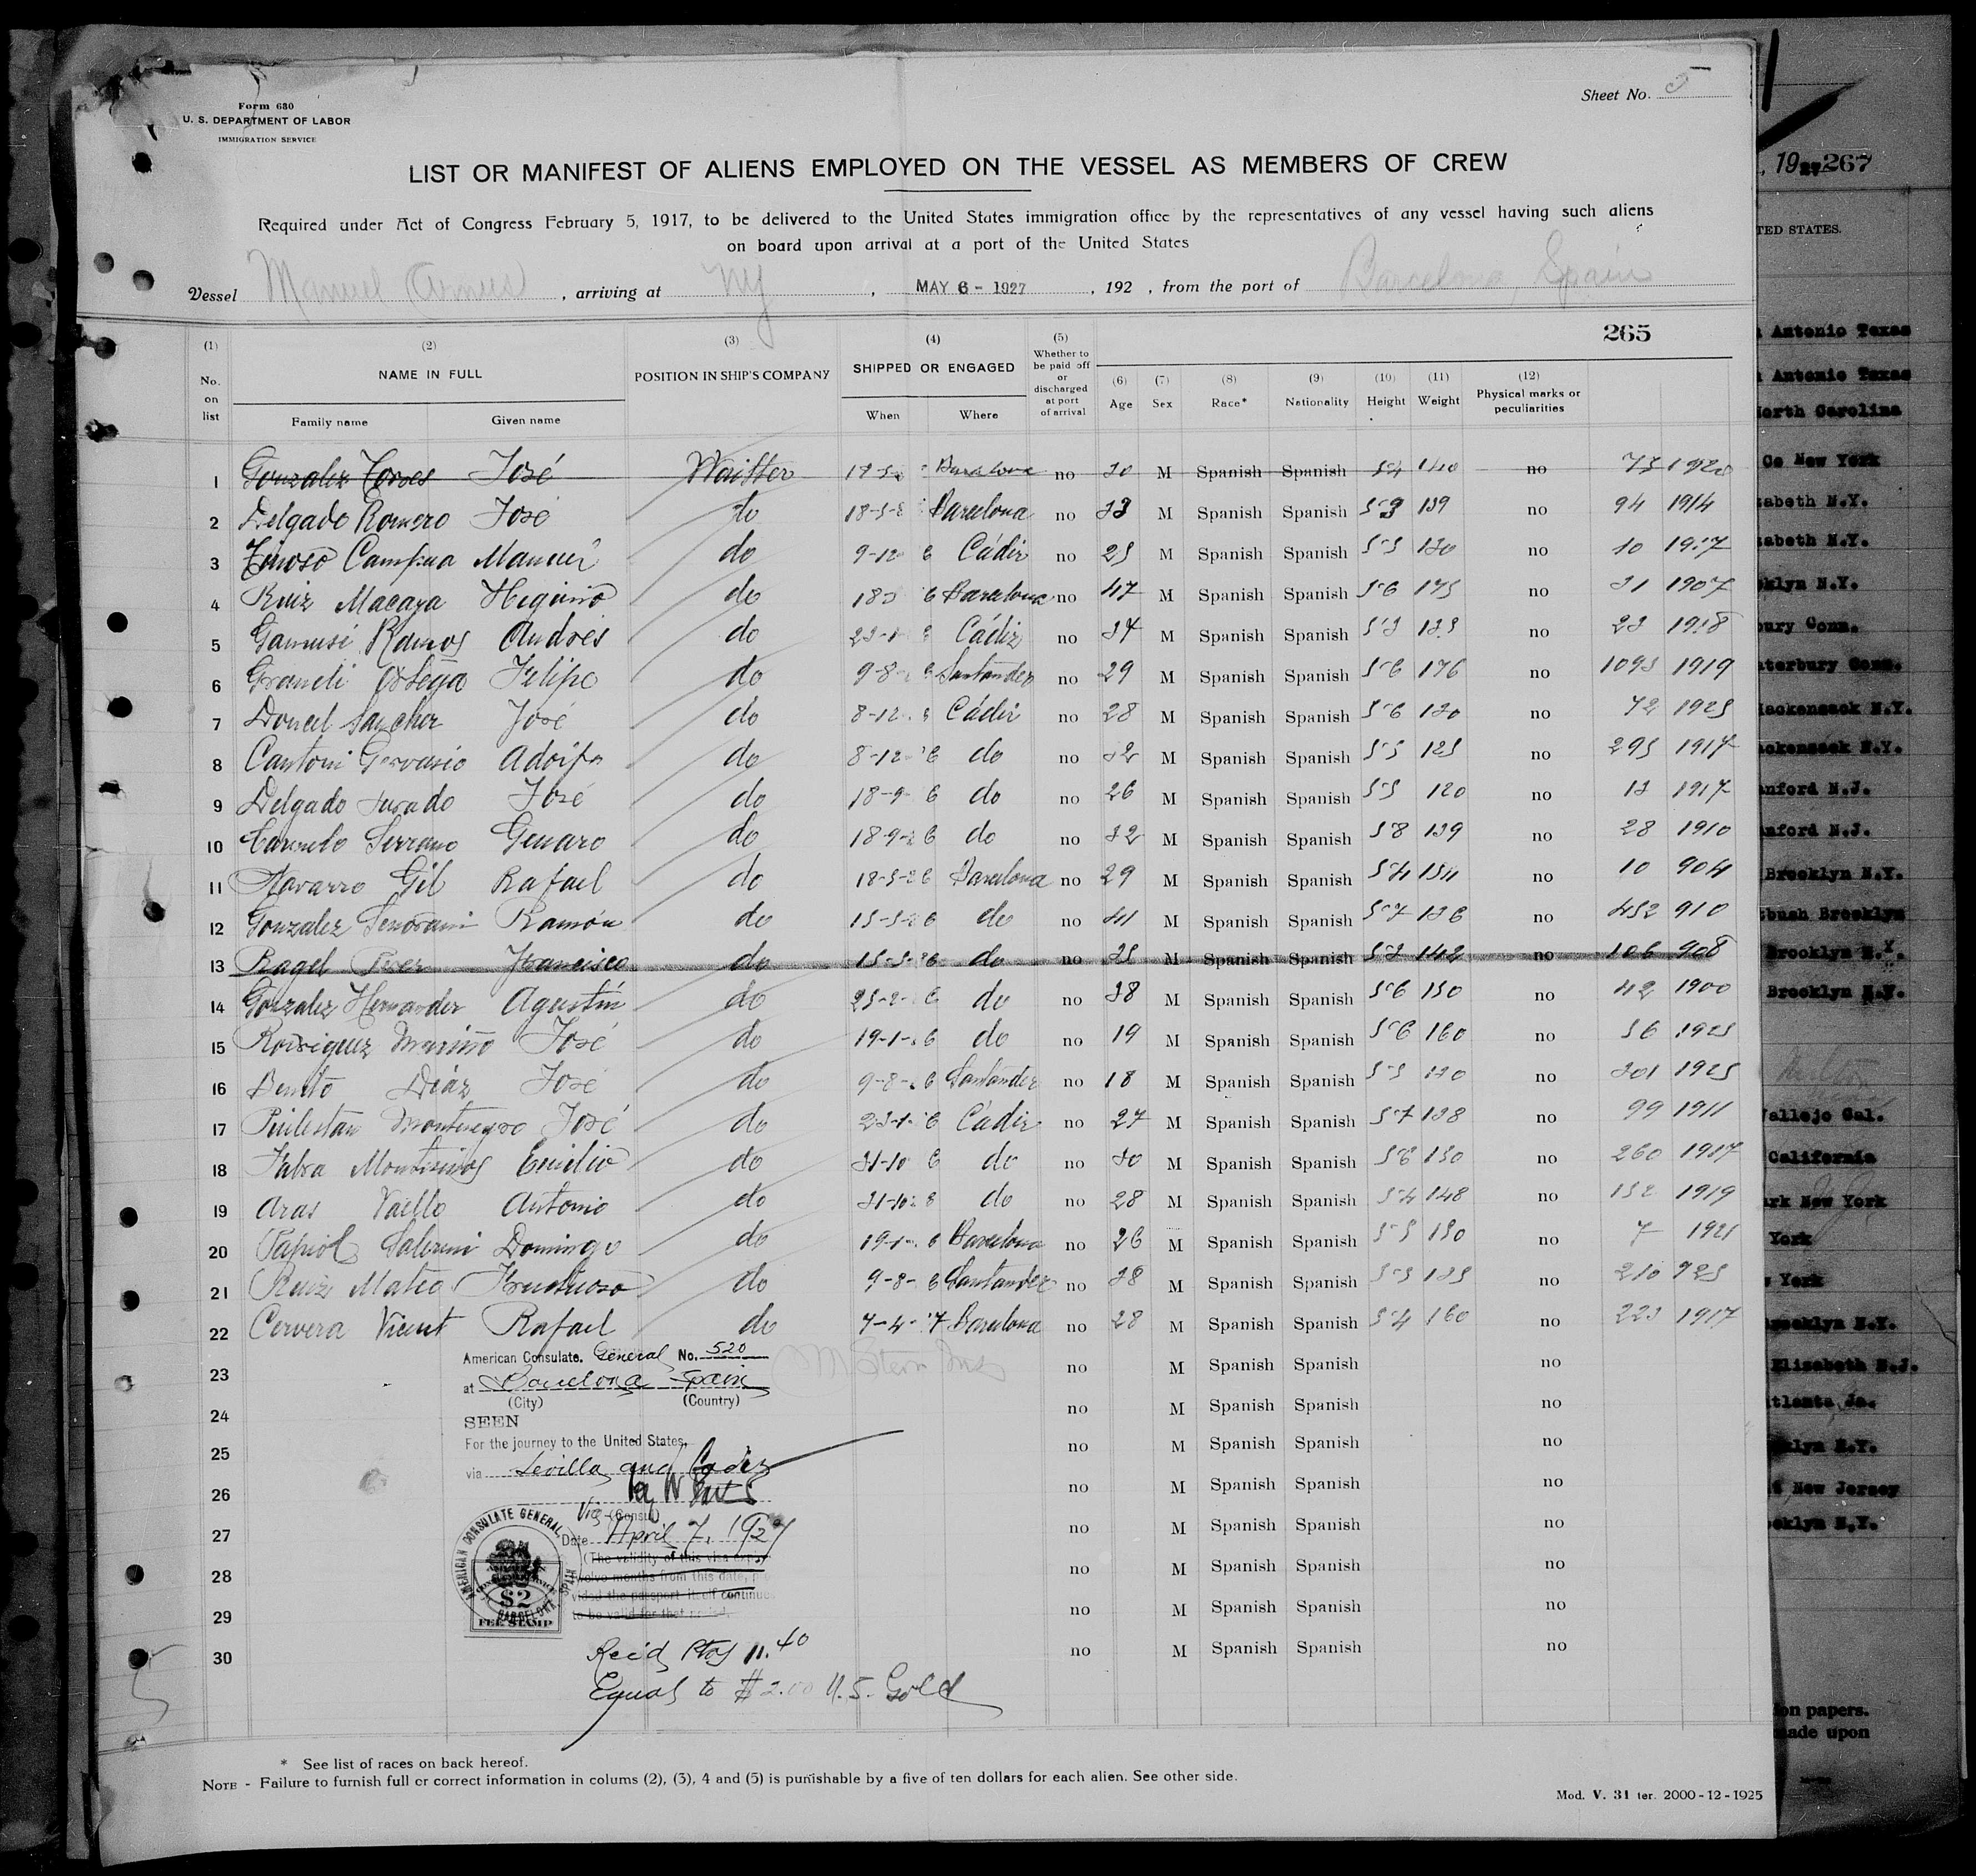 Form 680
U. S. DEPARTMENT OF LABOR
IMMIGRATION SERVICE
Sheet No. 5
LIST OR MANIFEST OF ALIENS EMPLOYED ON THE VESSEL AS MEMBERS OF CREW
Required under Act of Congress February 5, 1917, to be delivered to the United States immigration office by the representatives of any vessel having such aliens
on board upon arrival at a port of the United States
Vessel Manuel Arnus, arriving at NY, MAY 6 - 1927, 192 , from the port of Barcelona, Spain
265
(1) No. on list
(2) NAME IN FULL Family name Given name
(3) POSITION IN SHIP'S COMPANY
(4) SHIPPED OR ENGAGED When Where
(5) Whether to be paid off or discharged at port of arrival
(6) Age (7) Sex (8) Race* (9) Nationality (10) Height (11) Weight (12) Physical marks or peculiarities
1 Gonzalez Torres José Waitter Barcelona no 30 M Spanish Spanish 5-4 140 no 75 1920
2 Delgado Romero José do Barcelona no 33 M Spanish Spanish 5-3 139 no 94 1914
3 Campua Manuel do 9-12 6 Cádiz no 25 M Spanish Spanish 5-5 130 no 10
4 Ruiz Macaya Higinio do 6 Barcelona no 47 M Spanish Spanish 5-6 175 no 31 1907
5 Ramos Andrés do Cádiz no 34 M Spanish Spanish 5-3 no 23 1918
6 Ortega Felipe do 9-8 6 Santander no 29 M Spanish Spanish 5-6 176 no 1093 1919
7 Doncel Sanchez José do 8-12 Cádiz no 28 M Spanish Spanish 5-6 130 no 72 1925
8 Cantoni Gervasio Adolfo do 8-12 6 do no 32 M Spanish Spanish 5-5 125 no 295 1917
9 Delgado Jurado José do 18-9 6 do no 26 M Spanish Spanish 5-5 120 no 13 1917
10 Serrano Genaro do 18-9-2 6 do no 32 M Spanish Spanish 5-8 139 no 28 1910
11 Navarro Gil Rafael do 18-5-2 6 Barcelona no 29 M Spanish Spanish 5-4 154 no 10 904
12 Gonzalez Ramón do 15-5-2 6 do no 41 M Spanish Spanish 5-7 136 no 452 910
13 Ragel Francisco do 15-5-26 do no 25 M Spanish Spanish 5-2 142 no 106 908
14 Gonzalez Hernandez Agustín do 25-2- 6 do no 38 M Spanish Spanish 5-6 150 no 42 1900
15 Rodriguez Mariño José do 19-1- 6 do no 19 M Spanish Spanish 5-6 160 no 56 1925
16 Benito Diáz José do 9-8- 6 Santander no 18 M Spanish Spanish 5-5 130 no 301 1925
17 Montenegro José do 23-1- 6 Cádiz no 27 M Spanish Spanish 5-7 138 no 99 1911
18 Fabra Montesinos Emilio do 31-10 6 do no 30 M Spanish Spanish 5-6 150 no 260 1917
19 Aras Vaello Antonio do 31-10 do no 28 M Spanish Spanish 5-4 148 no 152 1919
20 Papiol Domingo do 19-1- 6 Barcelona no 26 M Spanish Spanish 5-5 150 no 7 1921
21 Ruiz Mateo Fructuoso do 9-8- 6 Santander no 38 M Spanish Spanish 5-5 135 no 210 925
22 Cervera Vicent Rafael do 7-4-'7 Barcelona no 28 M Spanish Spanish 5-4 160 no 223 1917
23 no M Spanish Spanish no
24 no M Spanish Spanish no
25 no M Spanish Spanish no
26 no M Spanish Spanish no
27 no M Spanish Spanish no
28 no M Spanish Spanish no
29 no M Spanish Spanish no
30 no M Spanish Spanish no
American Consulate. General No. 520
at Barcelona Spain
(City) (Country)
SEEN
For the journey to the United States,
via Sevilla and Cadiz
Vice (Consul)
Date April 7, 1927
(The validity of this visa expires
twelve months from this date, p
vided the passport itself continues
to be valid for that period.
AMERICAN CONSULATE GENERAL, BARCELONA, SPAIN
$2
FEE STAMP
Rec'd Ptas 11.40
Equal to $2.00 U.S. Gold
* See list of races on back hereof.
NOTE - Failure to furnish full or correct information in colums (2), (3), 4 and (5) is punishable by a five of ten dollars for each alien. See other side.
Mod. V. 31 ter. 2000-12-1925
, 19 267
TED STATES.
Antonio Texas
Antonio Texas
orth Carolina
Co New York
zabeth N.Y.
zabeth N.Y.
klyn N.Y.
bury Conn.
terbury Conn.
Hackensack N.Y.
ackensack N.Y.
anford N.J.
anford N.J.
Brooklyn N.Y.
tbush Brooklyn
Brooklyn N.Y.
Brooklyn N.Y.
Vallejo Cal.
California
ark New York
York
York
Brooklyn N.Y.
Elizabeth N.J.
tlanta, Ga.
klyn N.Y.
New Jersey
oklyn N.Y.
ion papers.
made upon